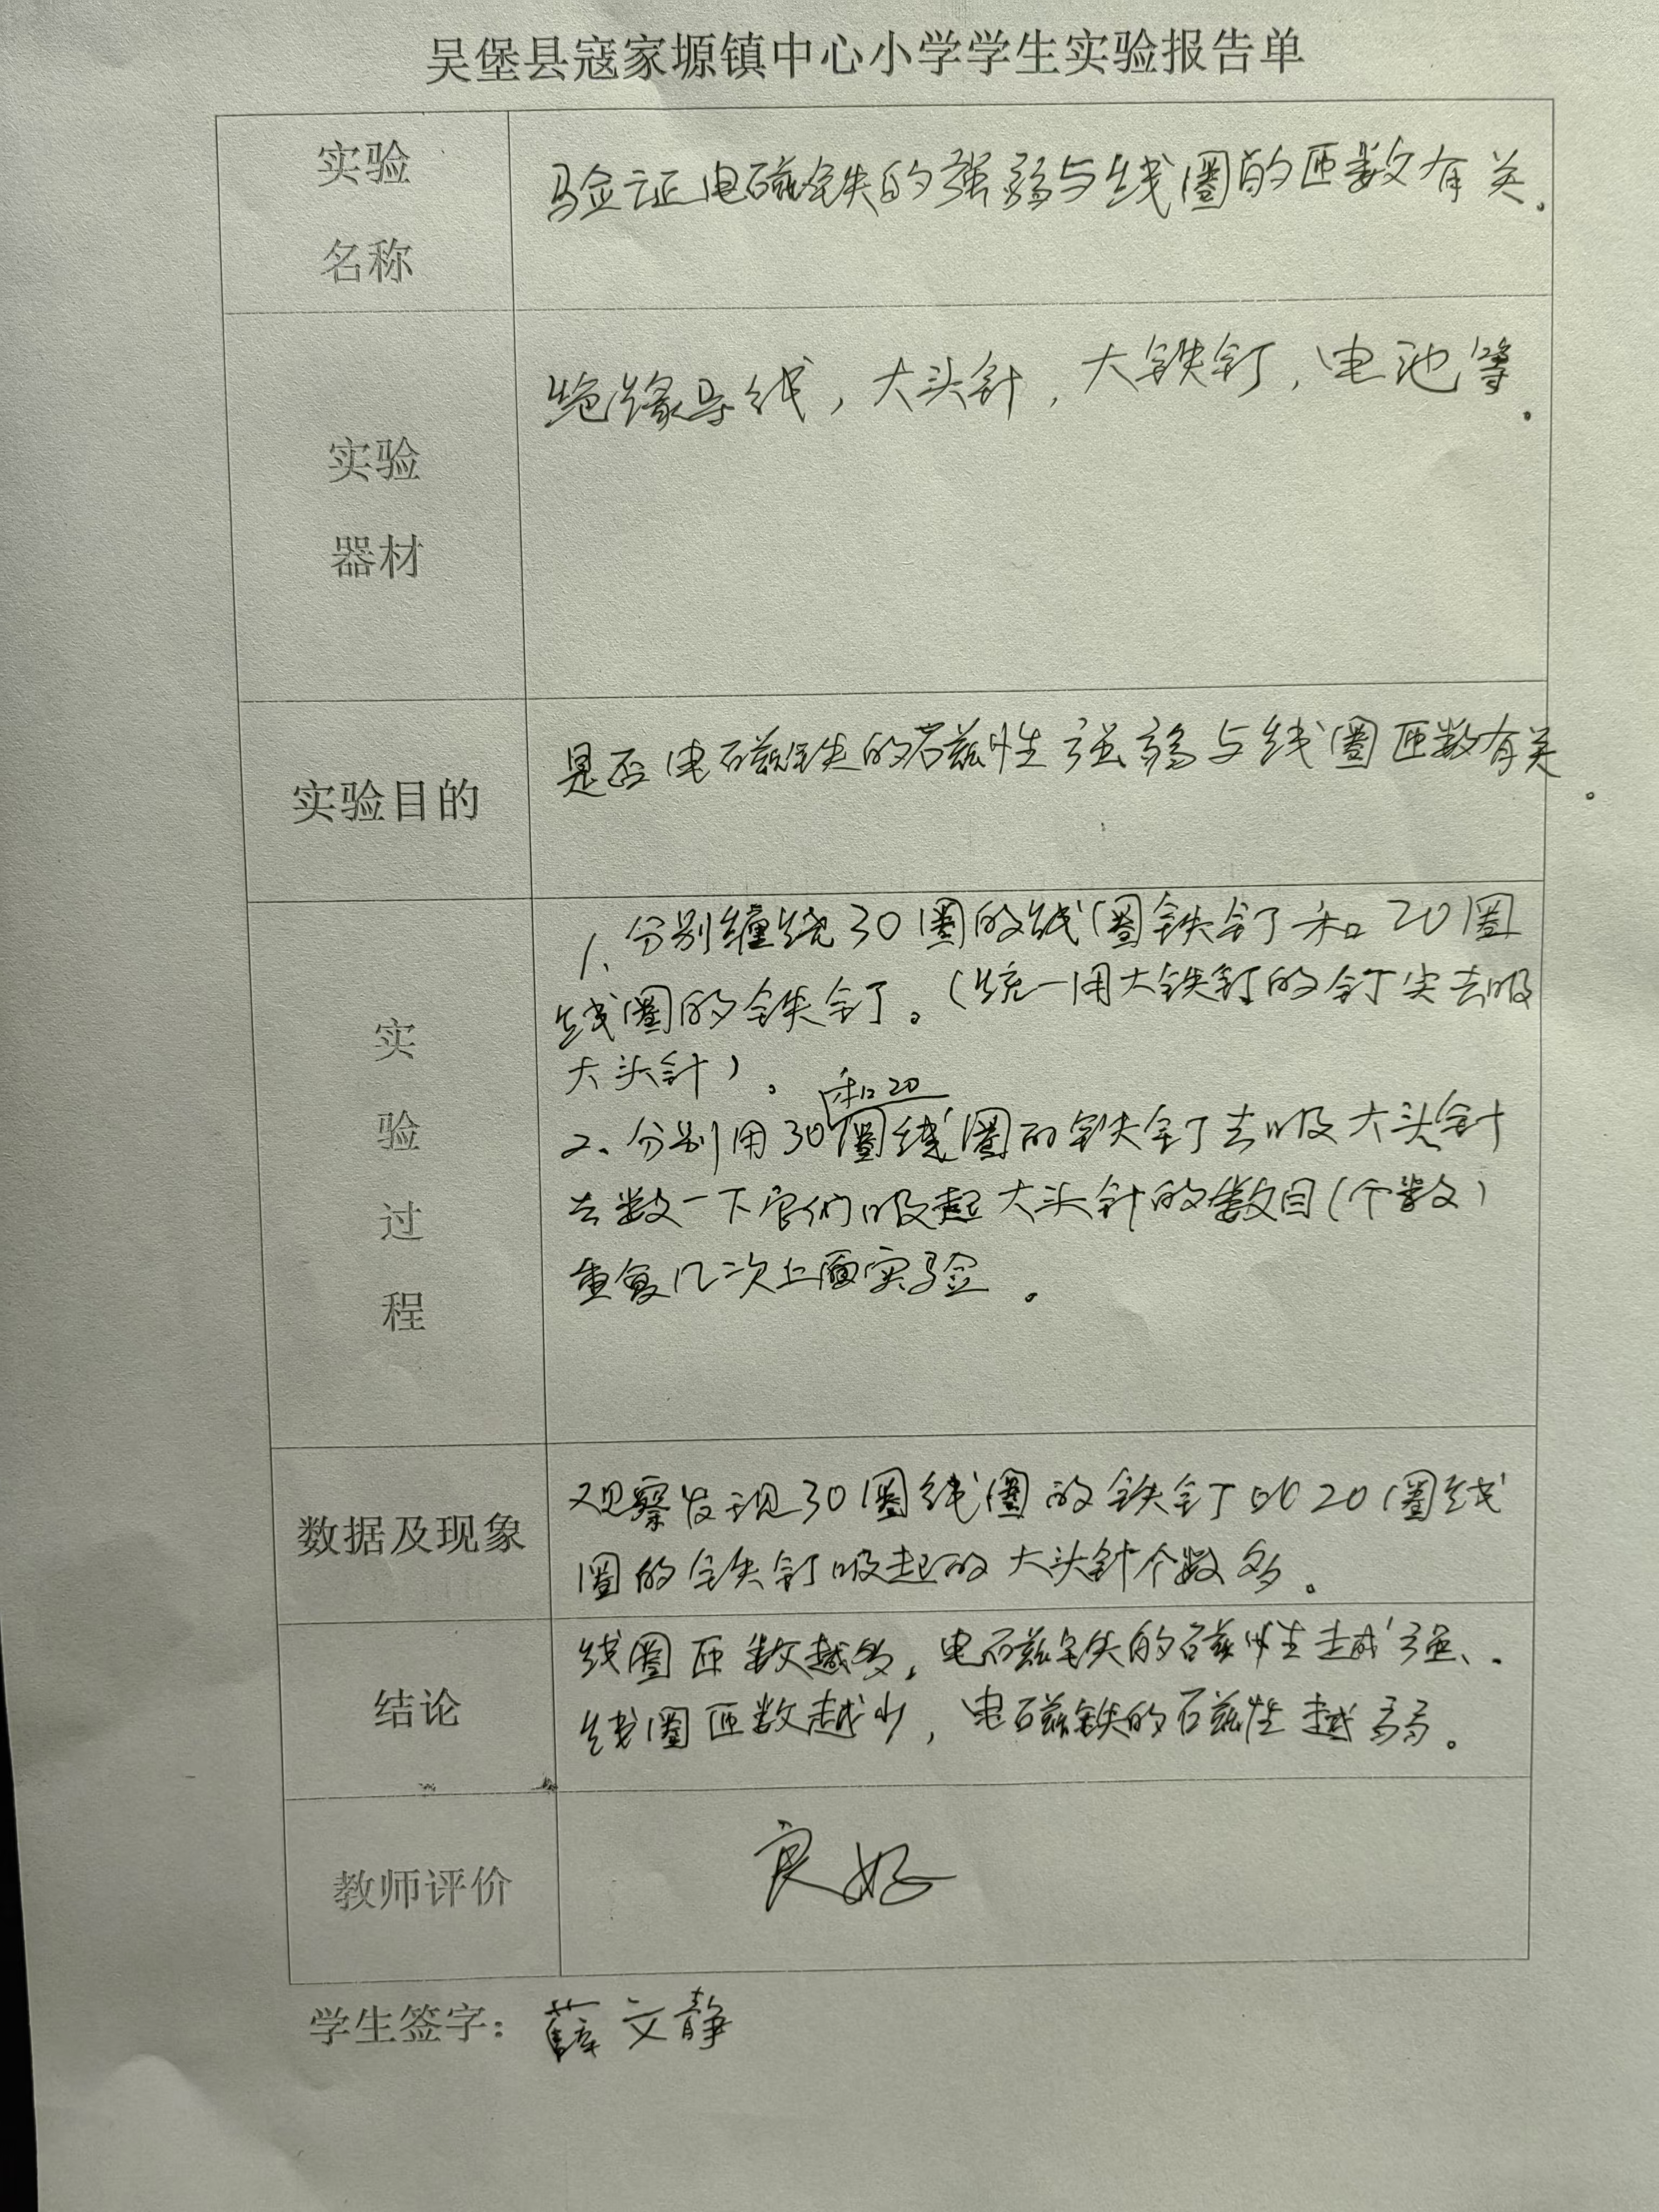 吴堡县寇家塬镇中心小学学生实验报告单
实验
名称
验证电磁铁的强弱与线圈的匝数有关。
实验
器材
绝缘导线，大头针，大铁钉，电池等。
实验目的
是否电磁铁的磁性强弱与线圈匝数有关。
实
验
过
程
1、分别缠绕30圈的线圈铁钉和20圈
线圈的铁钉。（统一用大铁钉的钉尖去吸
大头针）。
和20
2、分别用30圈线圈的铁钉去吸大头针
去数一下它们吸起大头针的数目（个数）
重复几次上面实验。
数据及现象
观察发现30圈线圈的铁钉比20圈线
圈的铁钉吸起的大头针个数多。
结论
线圈匝数越多，电磁铁的磁性越强、.
线圈匝数越少，电磁铁的磁性越弱。
教师评价
良好
学生签字：薛文静